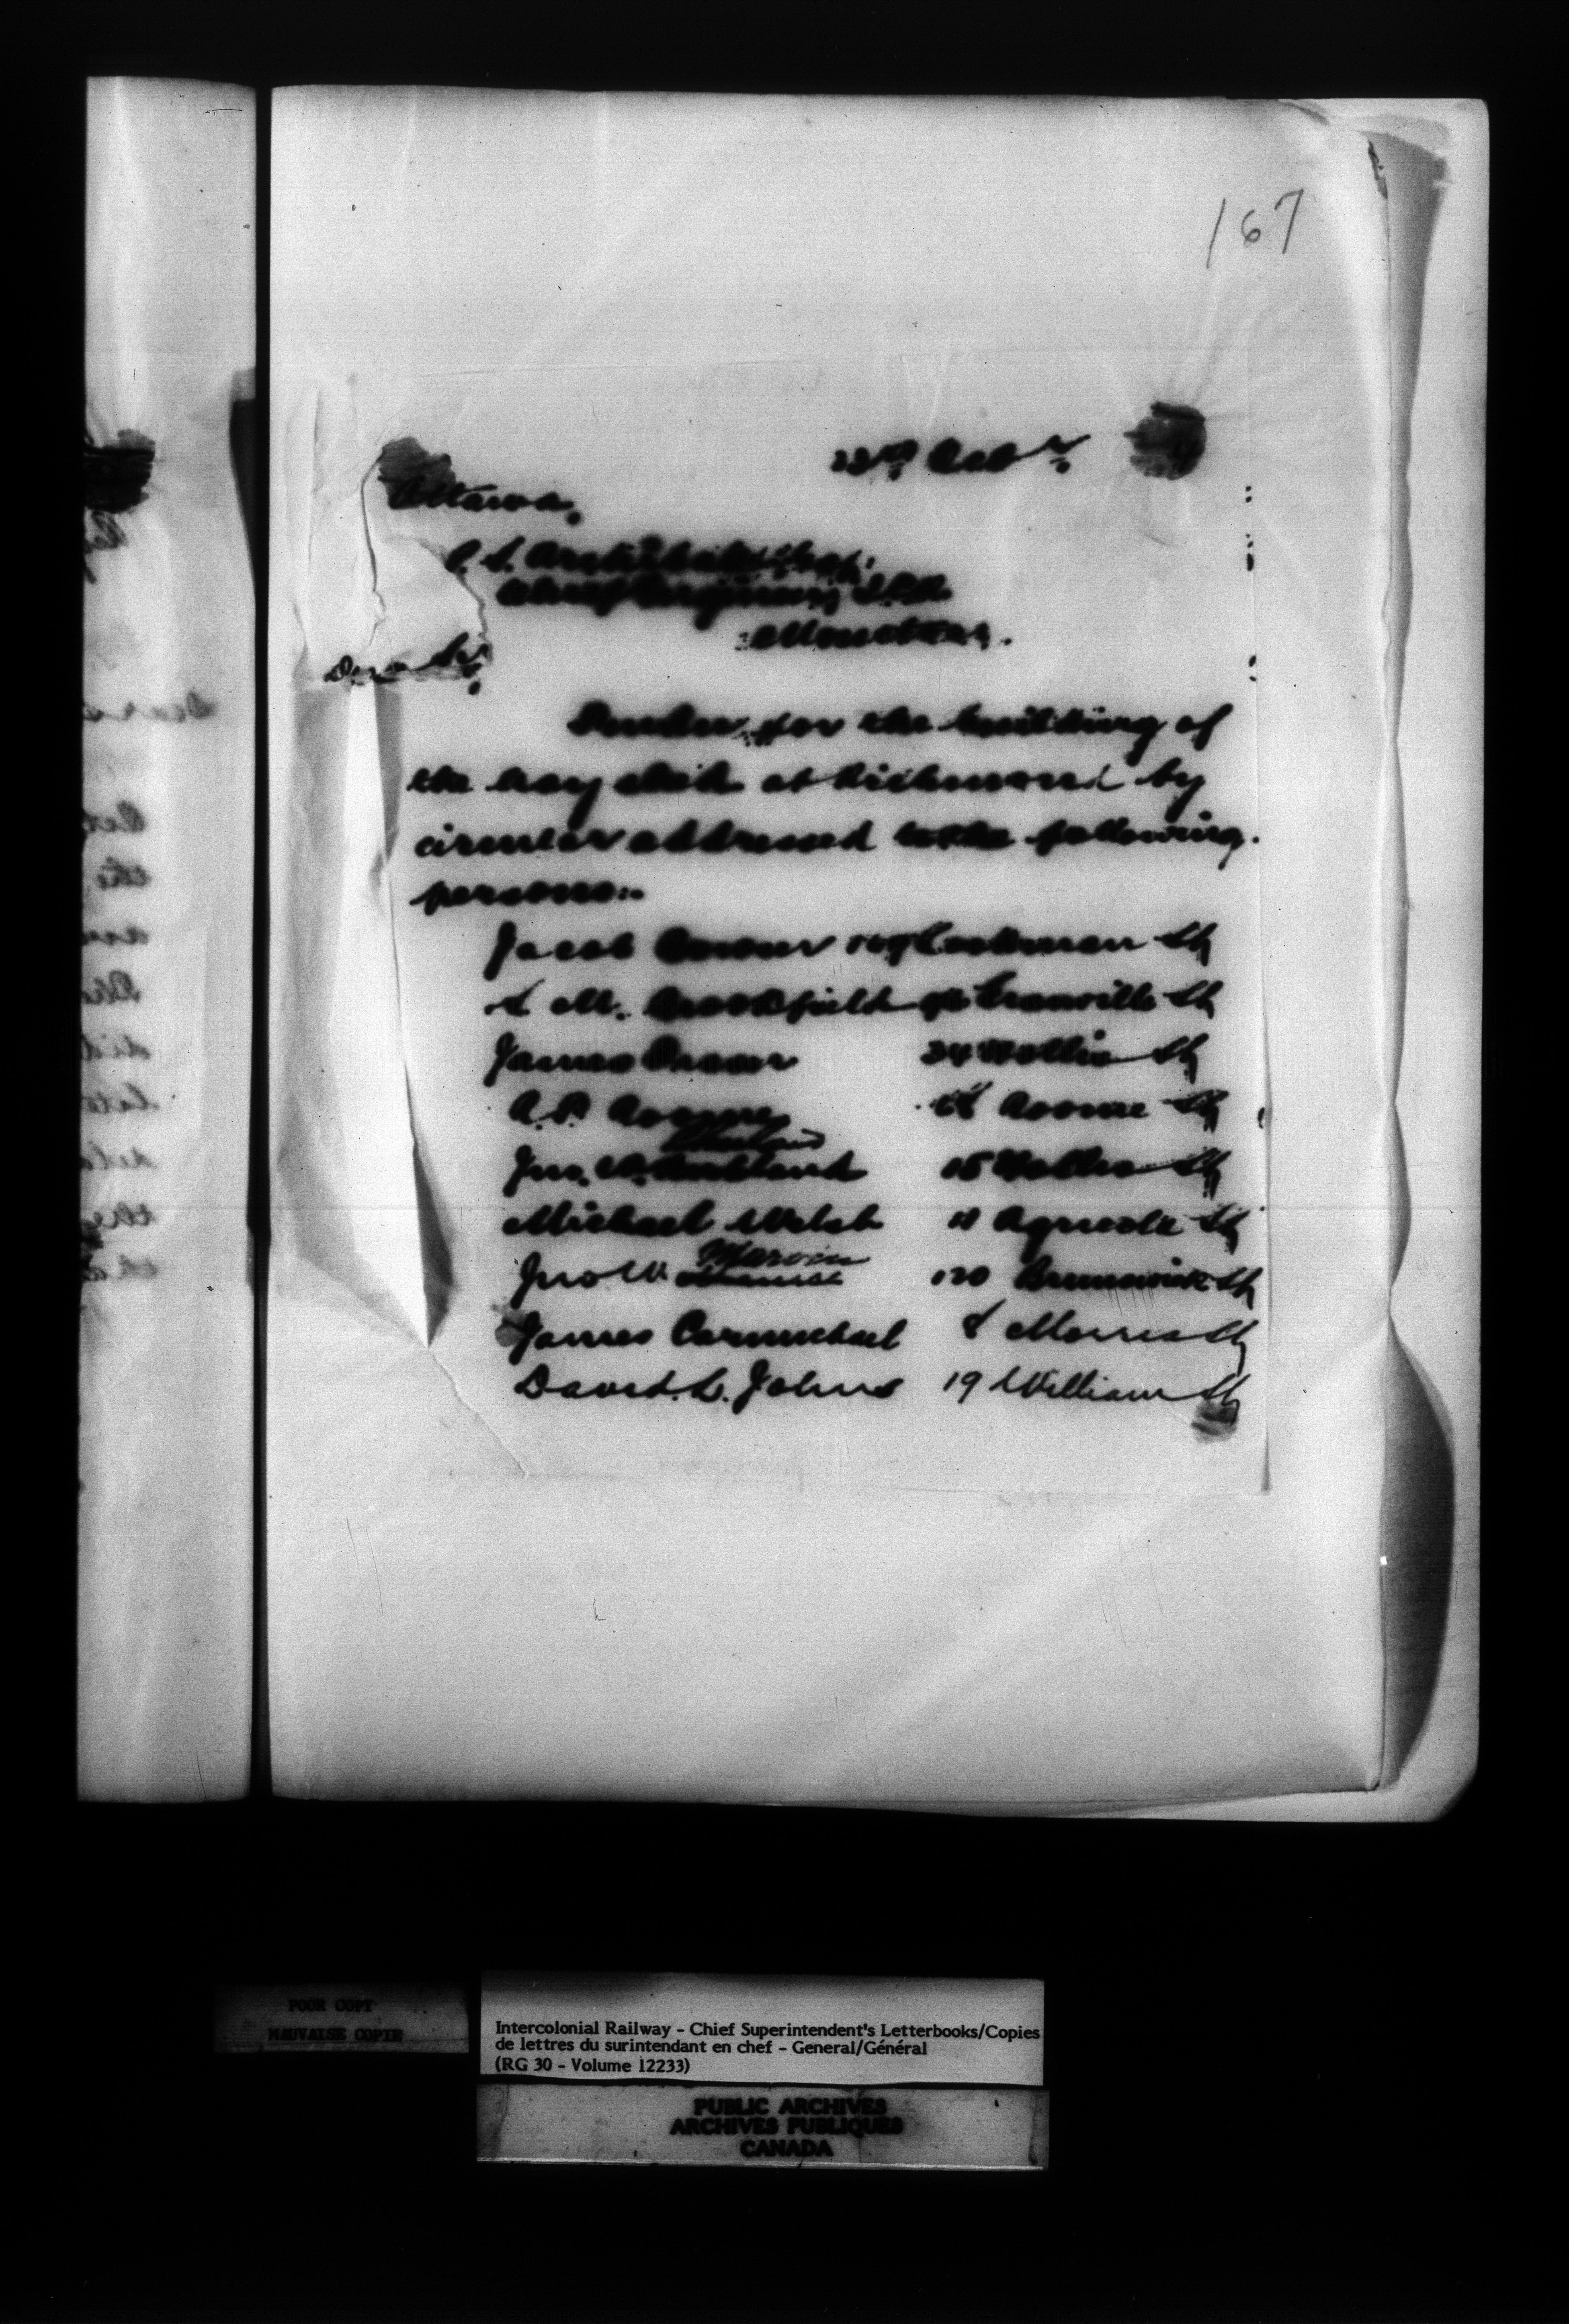 167
Octr
Ottawa,
P. S. Archibald Esq.
Chief Engineer, I.C.R.
Moncton.
Dear Sir,
Tender for the building of
the hay shed at Richmond by
circular addressed to the following
persons:-
Jacob Bower 109 Lockman St
S M. Brookfield Granville St
James 34 Hollis St
A. P.
Jno. W. 15 Hollis St
Michael Welsh 11 Agricola St
Jno W. Marvin 120 Brunswick St
James Carmichael 8 Morris St
David. L. Johns 19 William St
POOR COPY
MAUVAISE COPIE
Intercolonial Railway - Chief Superintendent's Letterbooks/Copies
de lettres du surintendant en chef - General/Général
(RG 30 - Volume 12233)
PUBLIC ARCHIVES
ARCHIVES PUBLIQUES
CANADA